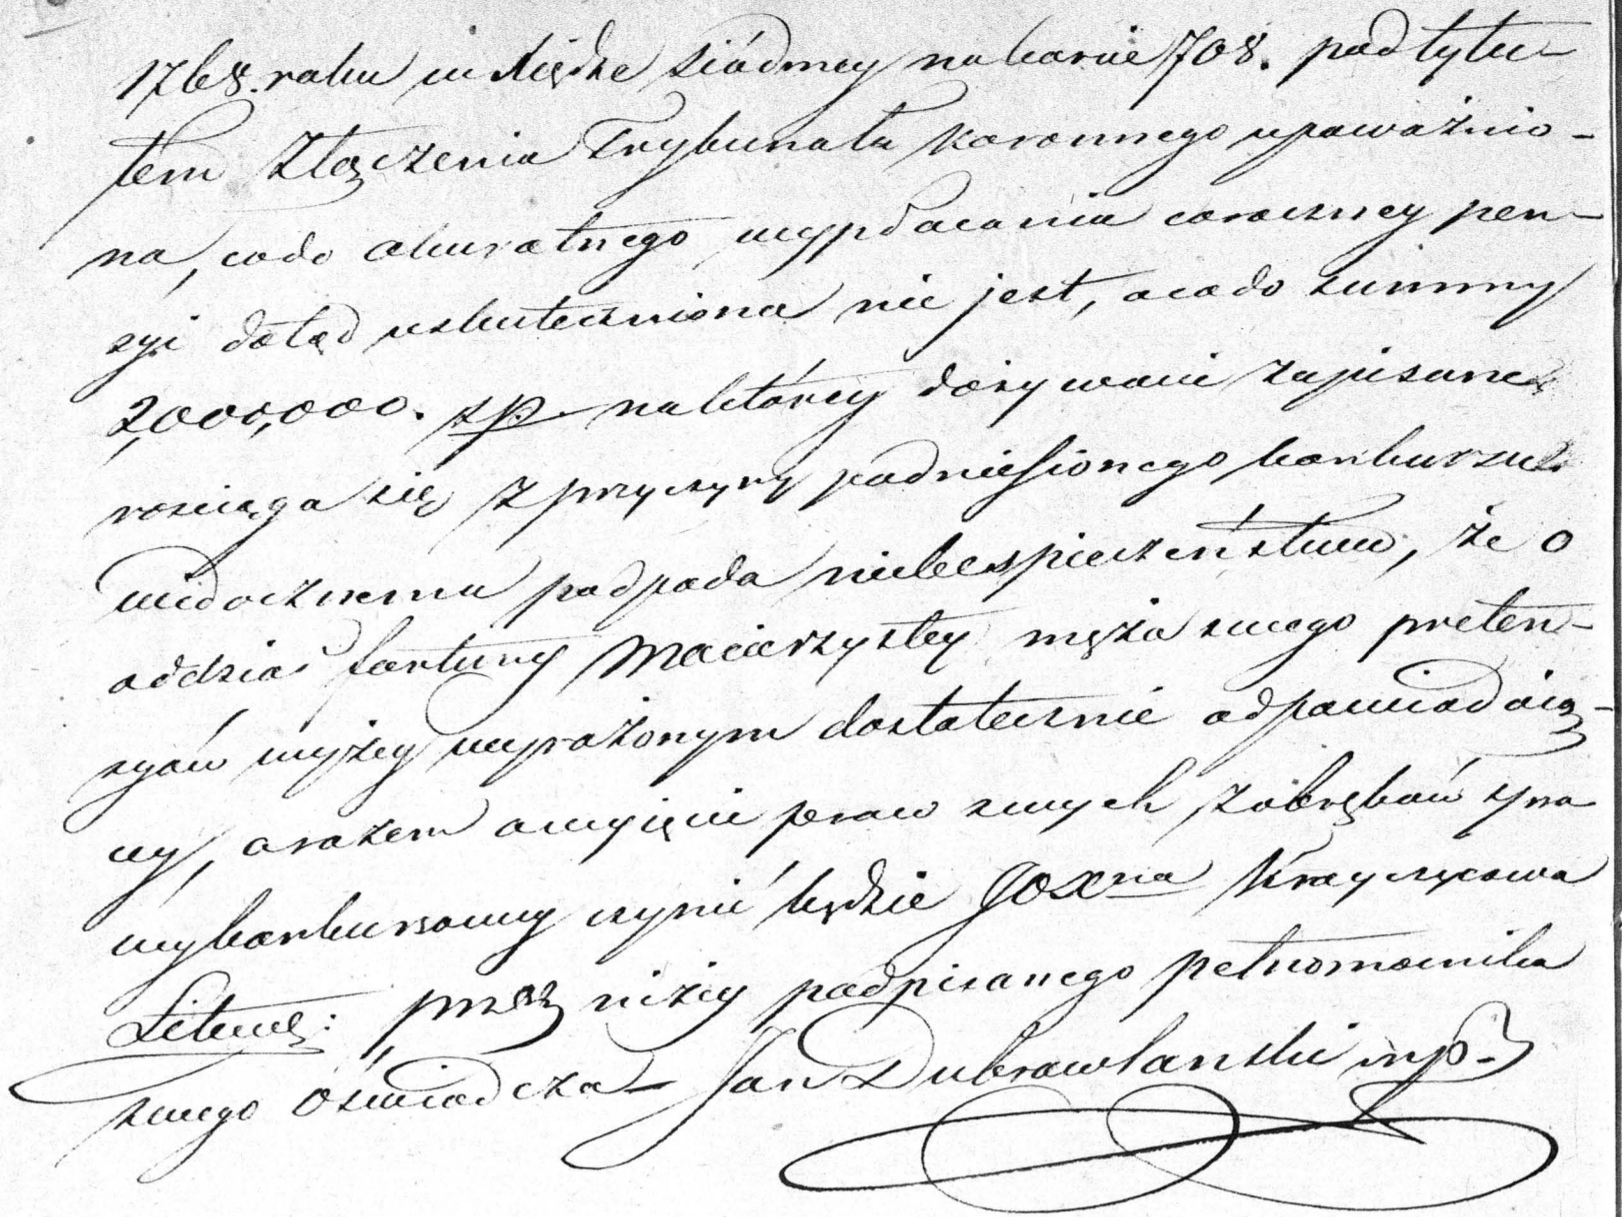 1768. roku w Xiędze siódmey na karcie 708. pod tytu-
łem Złączenia Trybunału Koronnego upoważnio-
na, codo akuratnego wypłacania coroczney pen-
syi dotąd uskuteczniona nie jest, a codo summy
2,000,000. zp na którey dożywocie zapisane
rosciąga się z przyczyny podniesionego konkursu
widocznemu podpada niebespieczeństwu, że o
oddział fortuny Macierzystey męża swego preten-
syów wyżey wyrażonym dostatecznie odpowiadaią-
cy, a razem o wyięcie praw swych z obrębów spra
wy konkursowey czynić będzie JOXna Krayczycowa
Litewe: przez niżey podpisanego pełnomocnika
swego oświadcza – Jan Dubrawlanski mp.